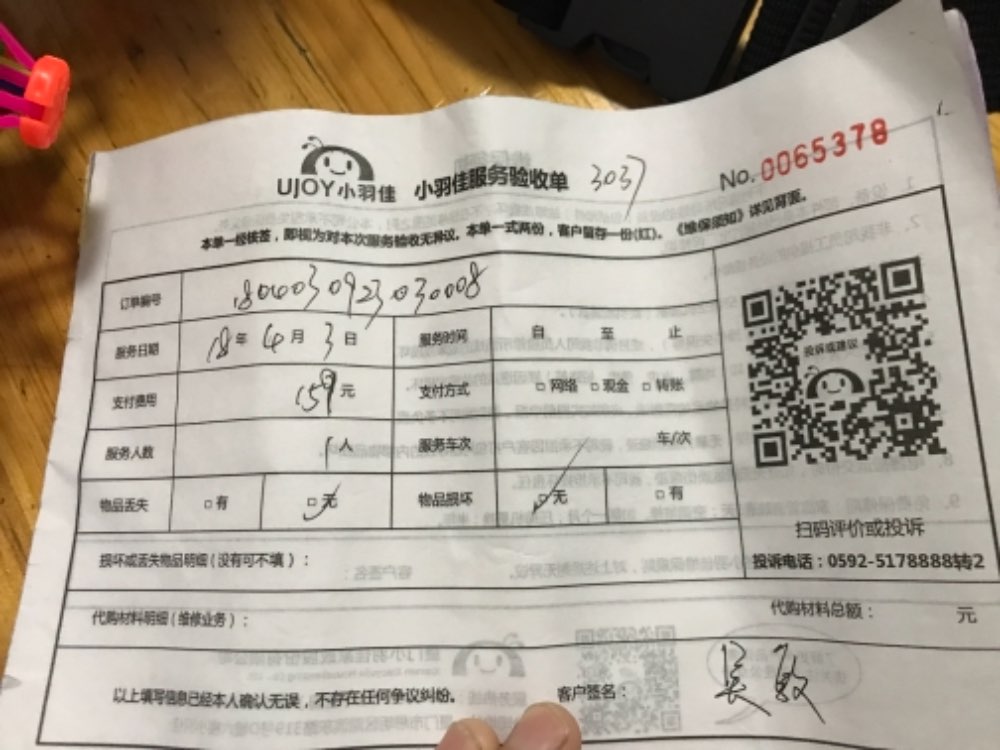 UJOY小羽佳 小羽佳服务验收单 3037 No.0065378
本单一经核签，即视为对本次服务验收无异议。本单一式两份，客户留存一份(红)。《维保须知》详见背面。
订单编号 1804030923030008
服务日期 18年4月3日 服务时间 自 至 止
支付费用 159元 支付方式 □网络 □现金 □转账
服务人数 1人 服务车次 车/次
物品丢失 □有 □无 物品损坏 □无 □有
投诉或建议
扫码评价或投诉
损坏或丢失物品明细（没有可不填）：
投诉电话：0592-5178888转2
代购材料明细（维修业务）：
代购材料总额： 元
以上填写信息已经本人确认无误，不存在任何争议纠纷。 客户签名： 吴敏